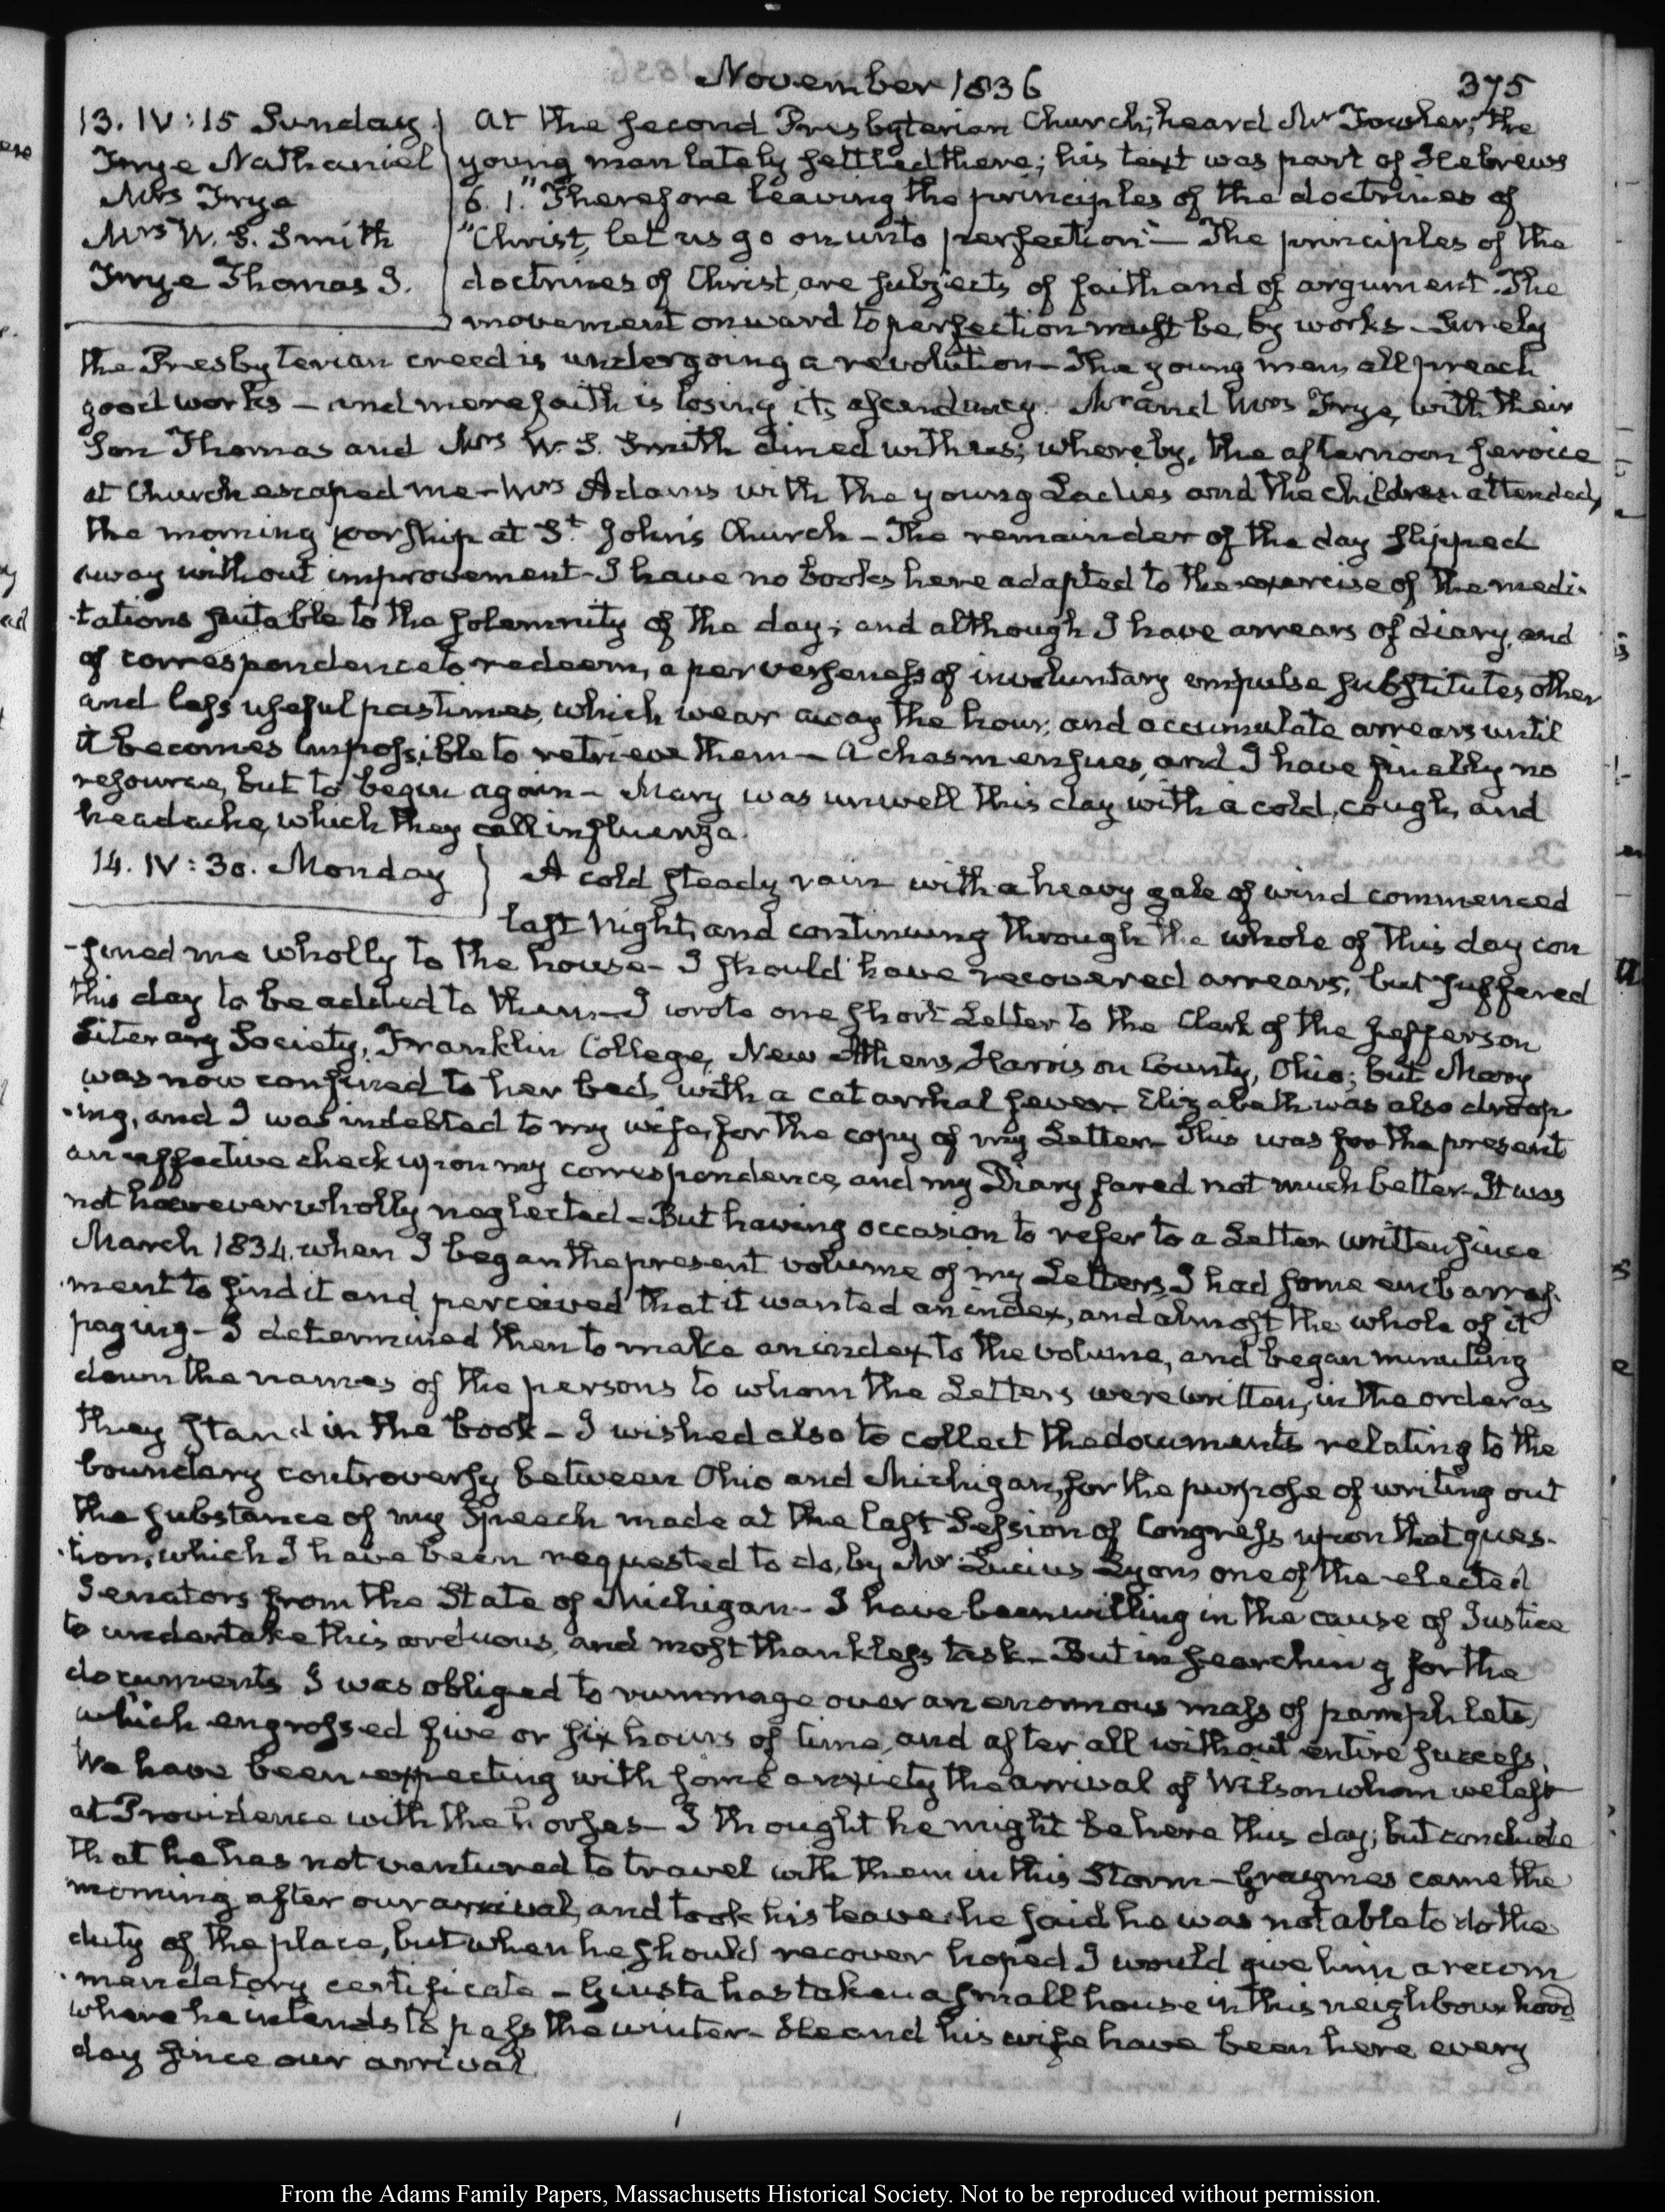 November 1836
375
13. IV: 15 Sunday.
Frye Nathaniel
Mrs Frye
Mrs W. S. Smith
Frye Thomas J.
At the second Presbyterian Church; heard Mr Fowler, the
young man lately settled there; his text was part of Hebrews
6. 1. "Therefore leaving the principles of the doctrines of
"Christ, let us go on unto perfection" — The principles of the
doctrines of Christ, are subjects of faith and of argument. The
movement onward to perfection must be by works - Surely
the Presbyterian creed is undergoing a revolution - The young men all preach
good works - and mere faith is losing its ascendancy. Mr and Mrs Frye, with their
Son Thomas and Mrs W. S. Smith dined with us; whereby, the afternoon service
at Church escaped me - Mrs Adams with the young Ladies and the children attended,
the morning worship at St. John's Church - The remainder of the day slipped
away without improvement - I have no books here adapted to the exercise of the medi-
-tations suitable to the solemnity of the day; and although I have arrears of diary, and
of correspondence to redeem, a perverseness of involuntary impulse substitutes other
and less useful pastimes, which wear away the hour; and accumulate arrears until
it becomes impossible to retrieve them - A chasm ensues, and I have finally no
resource, but to begin again - Mary was unwell this day with a cold, cough, and
headache, which they call influenza.
14. IV: 30. Monday
A cold steady rain with a heavy gale of wind commenced
last Night, and continuing through the whole of this day con
-fined me wholly to the house - I should have recovered arrears; but suffered
this day to be added to them - I wrote one short Letter to the Clerk of the Jefferson
Literary Society, Franklin College, New Athens, Harrison County, Ohio; but Mary
was now confined to her bed, with a catarrhal fever. Elizabeth was also droop
-ing, and I was indebted to my wife, for the copy of my Letter - This was for the present
an effective check upon my correspondence, and my Diary fared not much better. It was
not however wholly neglected - But having occasion to refer to a Letter written since
March 1834. when I began the present volume of my Letters, I had some embarrass-
ment to find it and perceived that it wanted an index, and almost the whole of it
paging - I determined then to make an index to the volume, and began minuting
down the names of the persons to whom the Letters were written, in the order as
they stand in the book - I wished also to collect the documents relating to the
boundary controversy between Ohio and Michigan, for the purpose of writing out
the substance of my Speech made at the last Session of Congress upon that ques-
-tion, which I have been requested to do, by Mr Lucius Lyon one of the elected
Senators from the State of Michigan - I have been willing in the cause of Justice
to undertake this arduous, and most thankless task - But in searching for the
documents I was obliged to rummage over an enormous mass of pamphlets,
which engrossed five or six hours of time, and after all without entire success.
We have been expecting with some anxiety the arrival of Wilson whom we left
at Providence with the horses - I thought he might be here this day; but conclude
that he has not ventured to travel with them in this Storm - Graymes came the
morning after our arrival, and took his leave. he said he was not able to do the
duty of the place, but when he should recover hoped I would give him a recom
-mendatory certificate - Giusta has taken a small house in this neighbourhood
where he intends to pass the winter - He and his wife have been here every
day since our arrival.
From the Adams Family Papers, Massachusetts Historical Society. Not to be reproduced without permission.